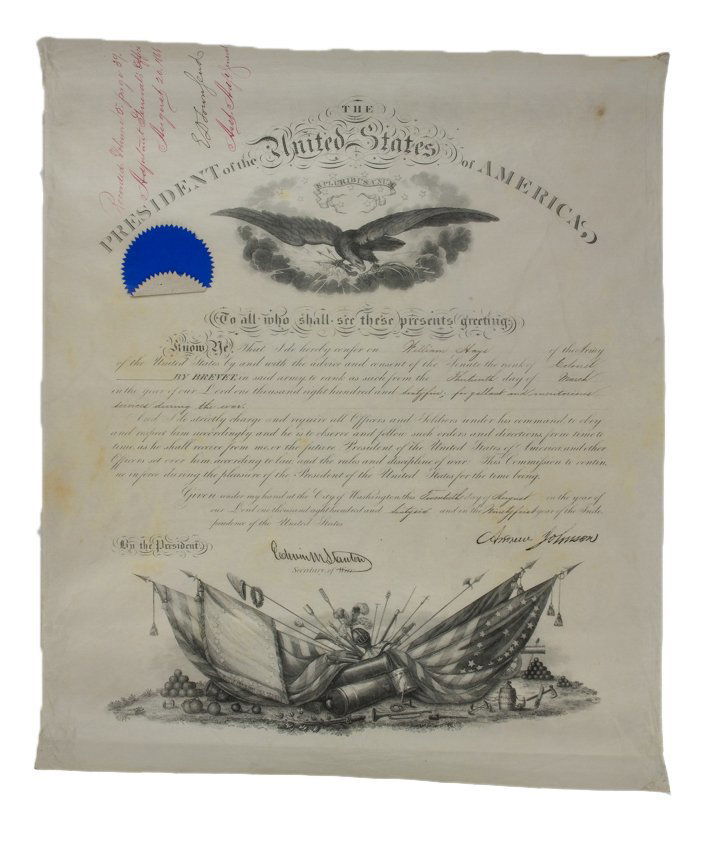 Recorded Volume 5, page 39
Adjutant General's Office
August 20, 1866
E D Townsend
Asst Adj Genl
THE
United States
PRESIDENT of the of AMERICA,
E PLURIBUS UNUM
To all who shall see these presents greeting:
Know Ye, That I do hereby confer on William Hays of the Army
of the United States by and with the advice and consent of the Senate the rank of Colonel
BY BREVET in said army to rank as such from the Thirteenth day of March
in the year of our Lord one thousand eight hundred and sixty five, for gallant and meritorious
services during the war.
And I do strictly charge and require all Officers and Soldiers under his command to obey
and respect him accordingly, and he is to observe and follow such orders and directions, from time to
time, as he shall receive from me, or the future President of the United States of America, and other
Officers set over him, according to law, and the rules and discipline of war. This Commission to contin
ue in force during the pleasure of the President of the United States for the time being.
Given under my hand at the City of Washington this Twentieth day of August in the year of
our Lord one thousand eight hundred and sixty six and in the Ninety first year of the Inde
pendence of the United States
Andrew Johnson
By the President,
Edwin M Stanton
Secretary of War